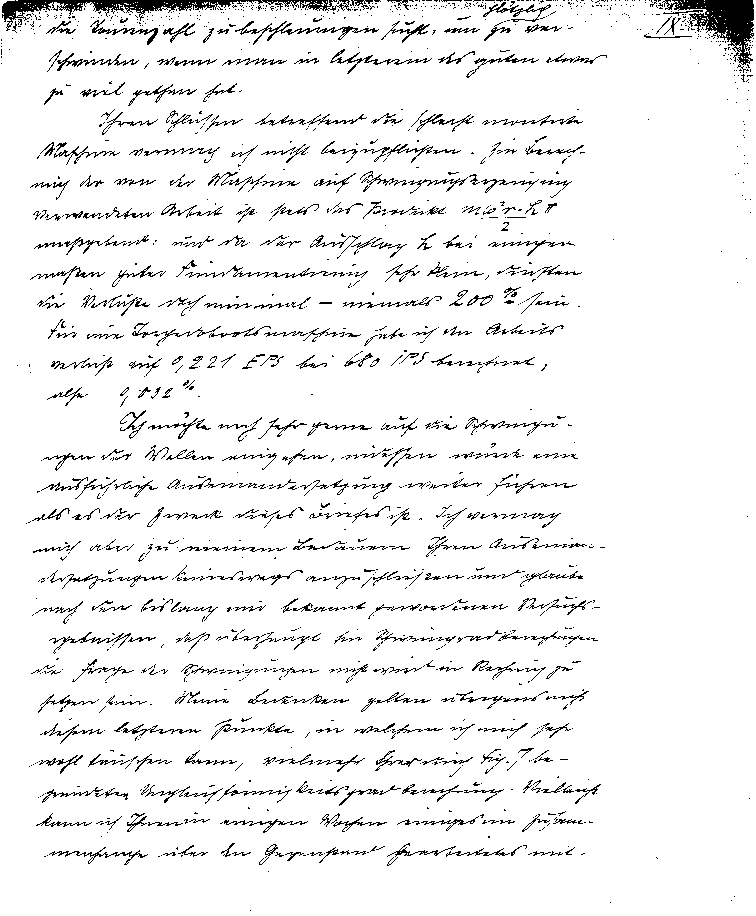 plötzlich
die Tourenzahl zu beschleunigen sucht, um zu ver-
IX.
schwinden, wenn man in letzterem des guten etwas
zu viel gethan hat.
Ihren Schlüssen betreffend die schlecht montirte
Maschine vermag ich nicht beizupflichten. Für Berech-
nung der von der Maschine auf Schwingungserzeugung
verwendeten Arbeit ist stets das Produkt mω²r·h π
2
maßgebend: und da der Ausschlag h bei einigen
maßen guter Fundamentirung sehr klein, dürften
die Verluste doch minimal – niemals 200 % sein.
Für eine Torpedobootsmaschine habe ich den Arbeits
verlust auf 0,221 EPS bei 680 IPS berechnet,
also 0,032 %.
Ich möchte noch sehr gerne auf die Schwingu-
ngen der Wellen eingehen, indessen würde eine
ausführliche Auseinandersetzung weiter führen
als es der Zweck dieses Briefes ist. Ich vermag
mich aber zu meinem Bedauern Ihren Auseinan-
dersetzungen keineswegs anzuschließen und glaube
nach den bislang mir bekannt gewordenen Versuchs-
ergebnissen, daß überhaupt bei
die Frage der Schwingungen nicht wird in Rechnung zu
setzen sein. Meine Bedenken gelten übrigens nicht
diesem letzteren Punkte, in welchem ich mich sehr
wohl täuschen kann, vielmehr Fig. 7 be-
gründeten Ungleichförmigkeitsgradberechnung. Vielleicht
kann ich Ihnen in einigen Wochen einiges im Zusam-
menhange über den Gegenstand bearbeitetes mit-